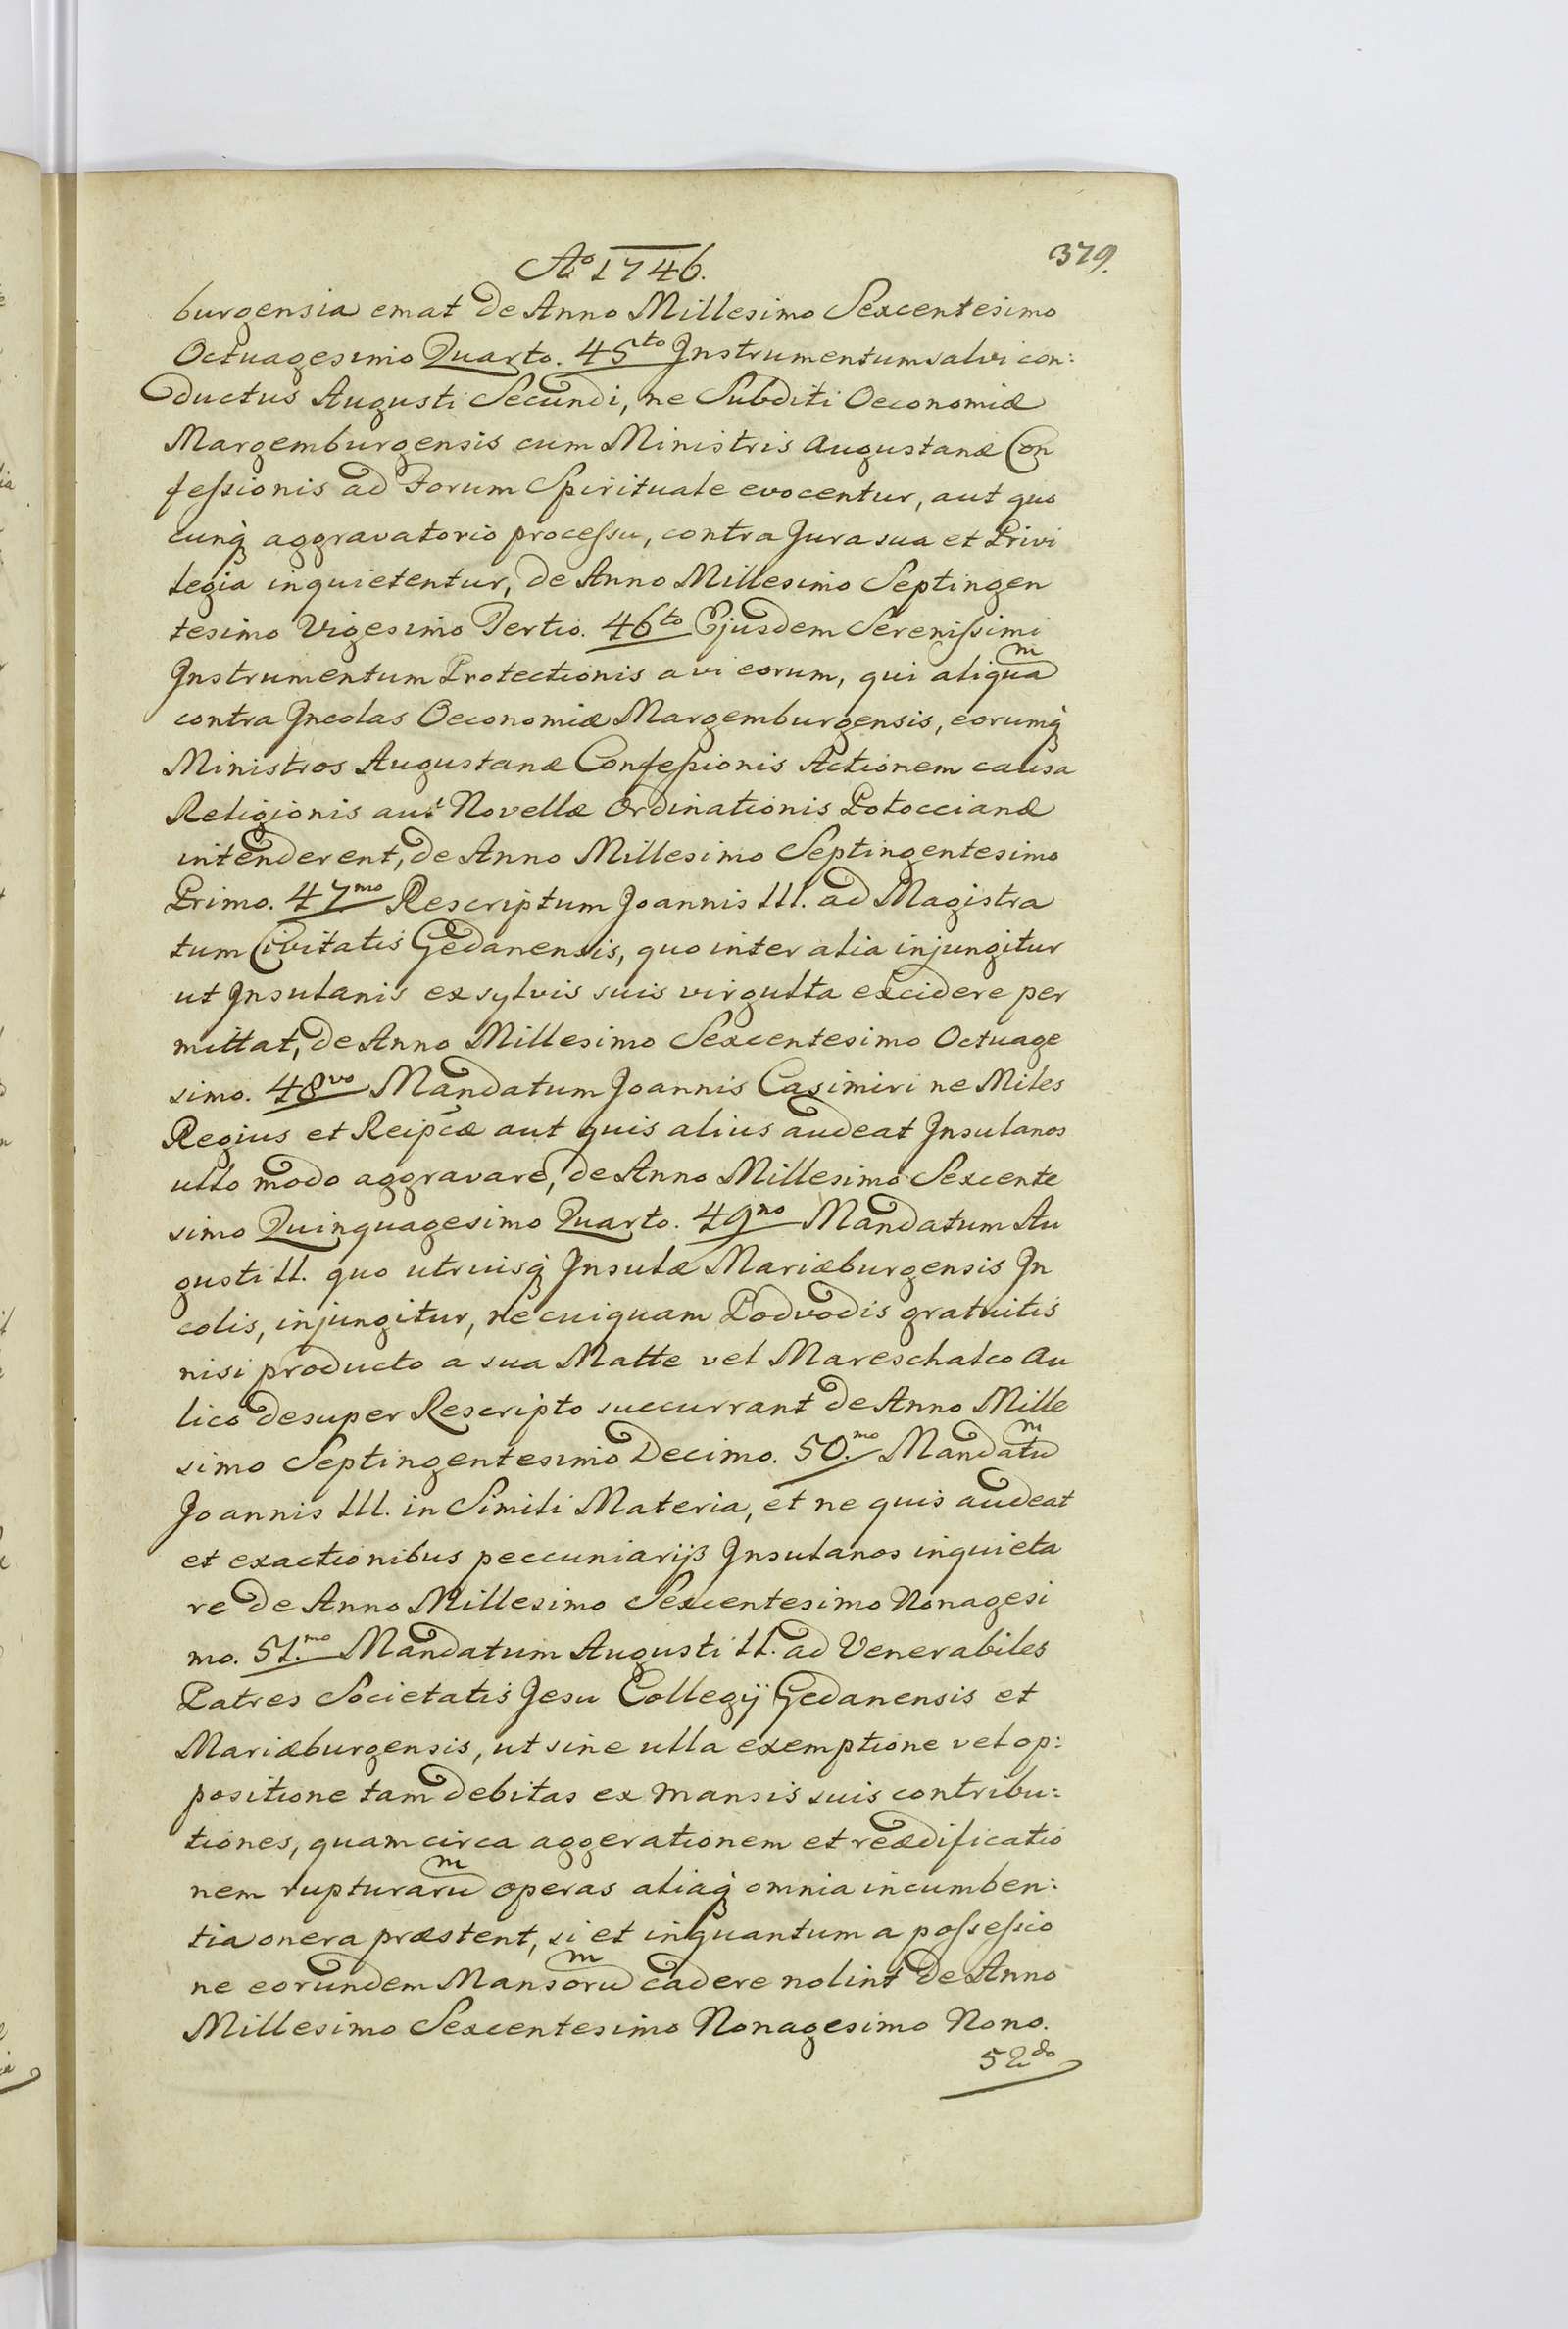 Aº 1746.
379.
burgensia emat de Anno Millesimo Sexcentesimo
Octuagesimo Quarto. 45to Instrumentum salvi con:
ductus Augusti Secundi, ne Subditi Oeconomiæ
Margemburgensis cum Ministris Augustanæ Con
feſsionis ad Forum Spirituale evocentur, aut quo
cunq aggravatorio proceſsu, contra Jura sua et Privi
legia inquietentur, de Anno Millesimo Septingen
tesimo Vigesimo Tertio. 46to Ejusdem Sereniſsimi
Instrumentum Protectionis a vi eorum, qui aliquam
contra Incolas Oeconomiæ Margemburgensis, eorumq
Ministros Augustanæ Confeſsionis Actionem causa
Religionis aut Novellæ Ordinationis Potoccianæ
intenderent, de Anno Millesimo Septingentesimo
Primo. 47mo Rescriptum Joannis III. ad Magistra
tum Civitatis Gedanensis, quo inter alia injungitur
ut Insulanis ex sylvis suis virgulta excidere per
mittat, de Anno Millesimo Sexcentesimo Octuage
simo. 48vo Mandatum Joannis Casimiri ne Miles
Regius et Reipcæ aut quis alius audeat Insulanos
ullo modo aggravare, de Anno Millesimo Sexcente
simo Quinquagesimo Quarto. 49no Mandatum Au
gusti II. quo utriusq Insulæ Mariæburgensis In
colis, injungitur, ne cuiquam Podvodis gratuitis
nisi producto a sua Matte vel Mareschalco Au
lico desuper Rescripto succurrant de Anno Mille
simo Septingentesimo Decimo. 50.mo Mandatum
Joannis III. in Simili Materia, et ne quis audeat
et exactionibus peccuniarijs Insulanos inquieta
re de Anno Millesimo Sexcentesimo Nonagesi
mo. 51.mo Mandatum Augusti II. ad Venerabiles
Patres Societatis Jesu Collegij Gedanensis et
Mariæburgensis, ut sine ulla exemptione vel op:
positione tam debitas ex mansis suis contribu:
tiones, quam circa aggerationem et reædificatio
nem rupturarum operas aliaq omnia incumben:
tia onera præstent, si et inquantum a poſseſsio
ne eorundem Mansorum cadere nolint de Anno
Millesimo Sexcentesimo Nonagesimo Nono.
52do